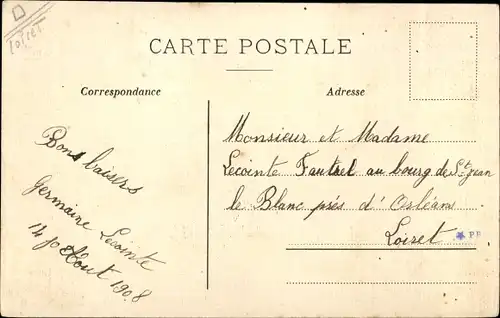 Loiret
CARTE POSTALE
Correspondance
Adresse
Bons baisers
Germaine Lecointe
14 Août 1908
Monsieur et Madame
Lecointe Fautrel au bourg de St jean
le Blanc près d'Orléans
Loiret
PB